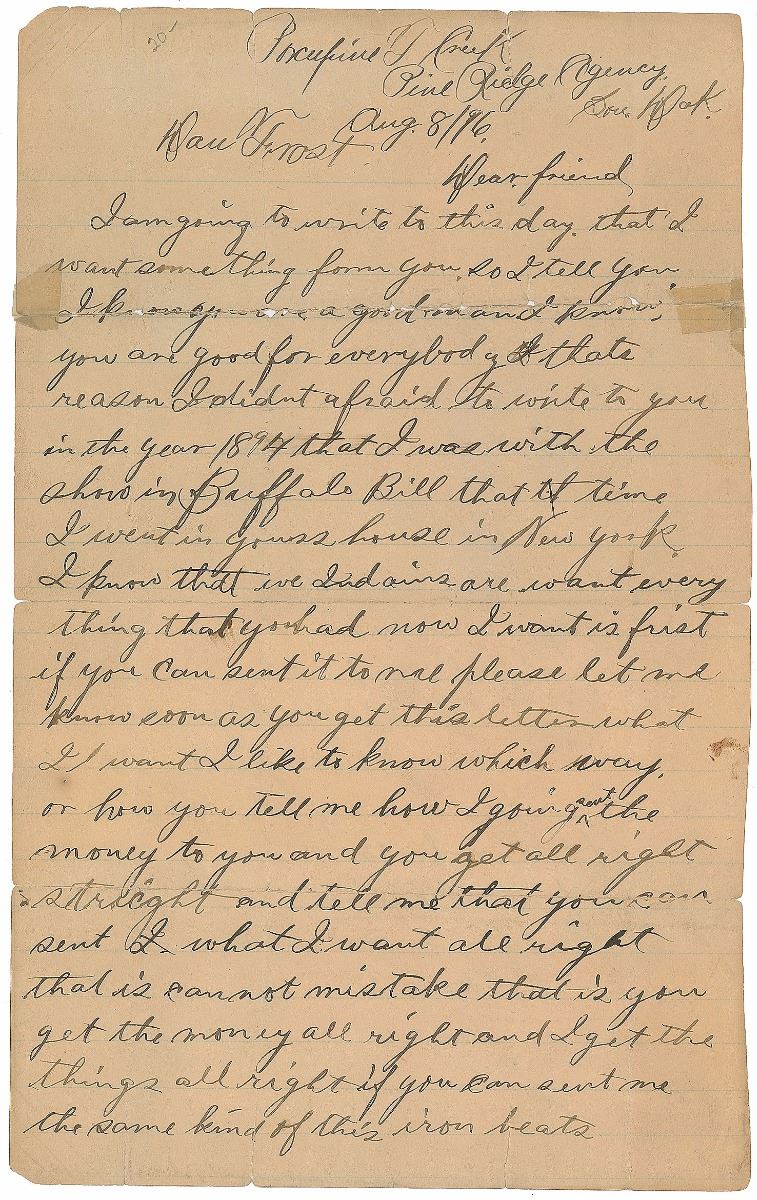 20-
Porcupine T Creek
Pine Ridge Agency.
Sou. Dak.
Aug. 8/96.
Dan Frost
Dear friend
I am going to write to this day. that I
want something form you. so I tell you
I know you are a good man and I know,
you are good for everybody thats
reason I didnt afraid to write to you
in the year 1894 that I was with the
show in Buffalo Bill that time
I went in yours house in New york.
I know that we Indains are want every
thing that you had now I want is frist
if you can sent it to me please let me
know soon as you get this letter what
I want I like to know which way.
or how you tell me how I going sent the
money to you and you get all right
strieght and tell me that you can
sent I what I want all right
that is can not mistake that is you
get the money all right and I get the
things all right if you can sent me
the same kind of this iron beats